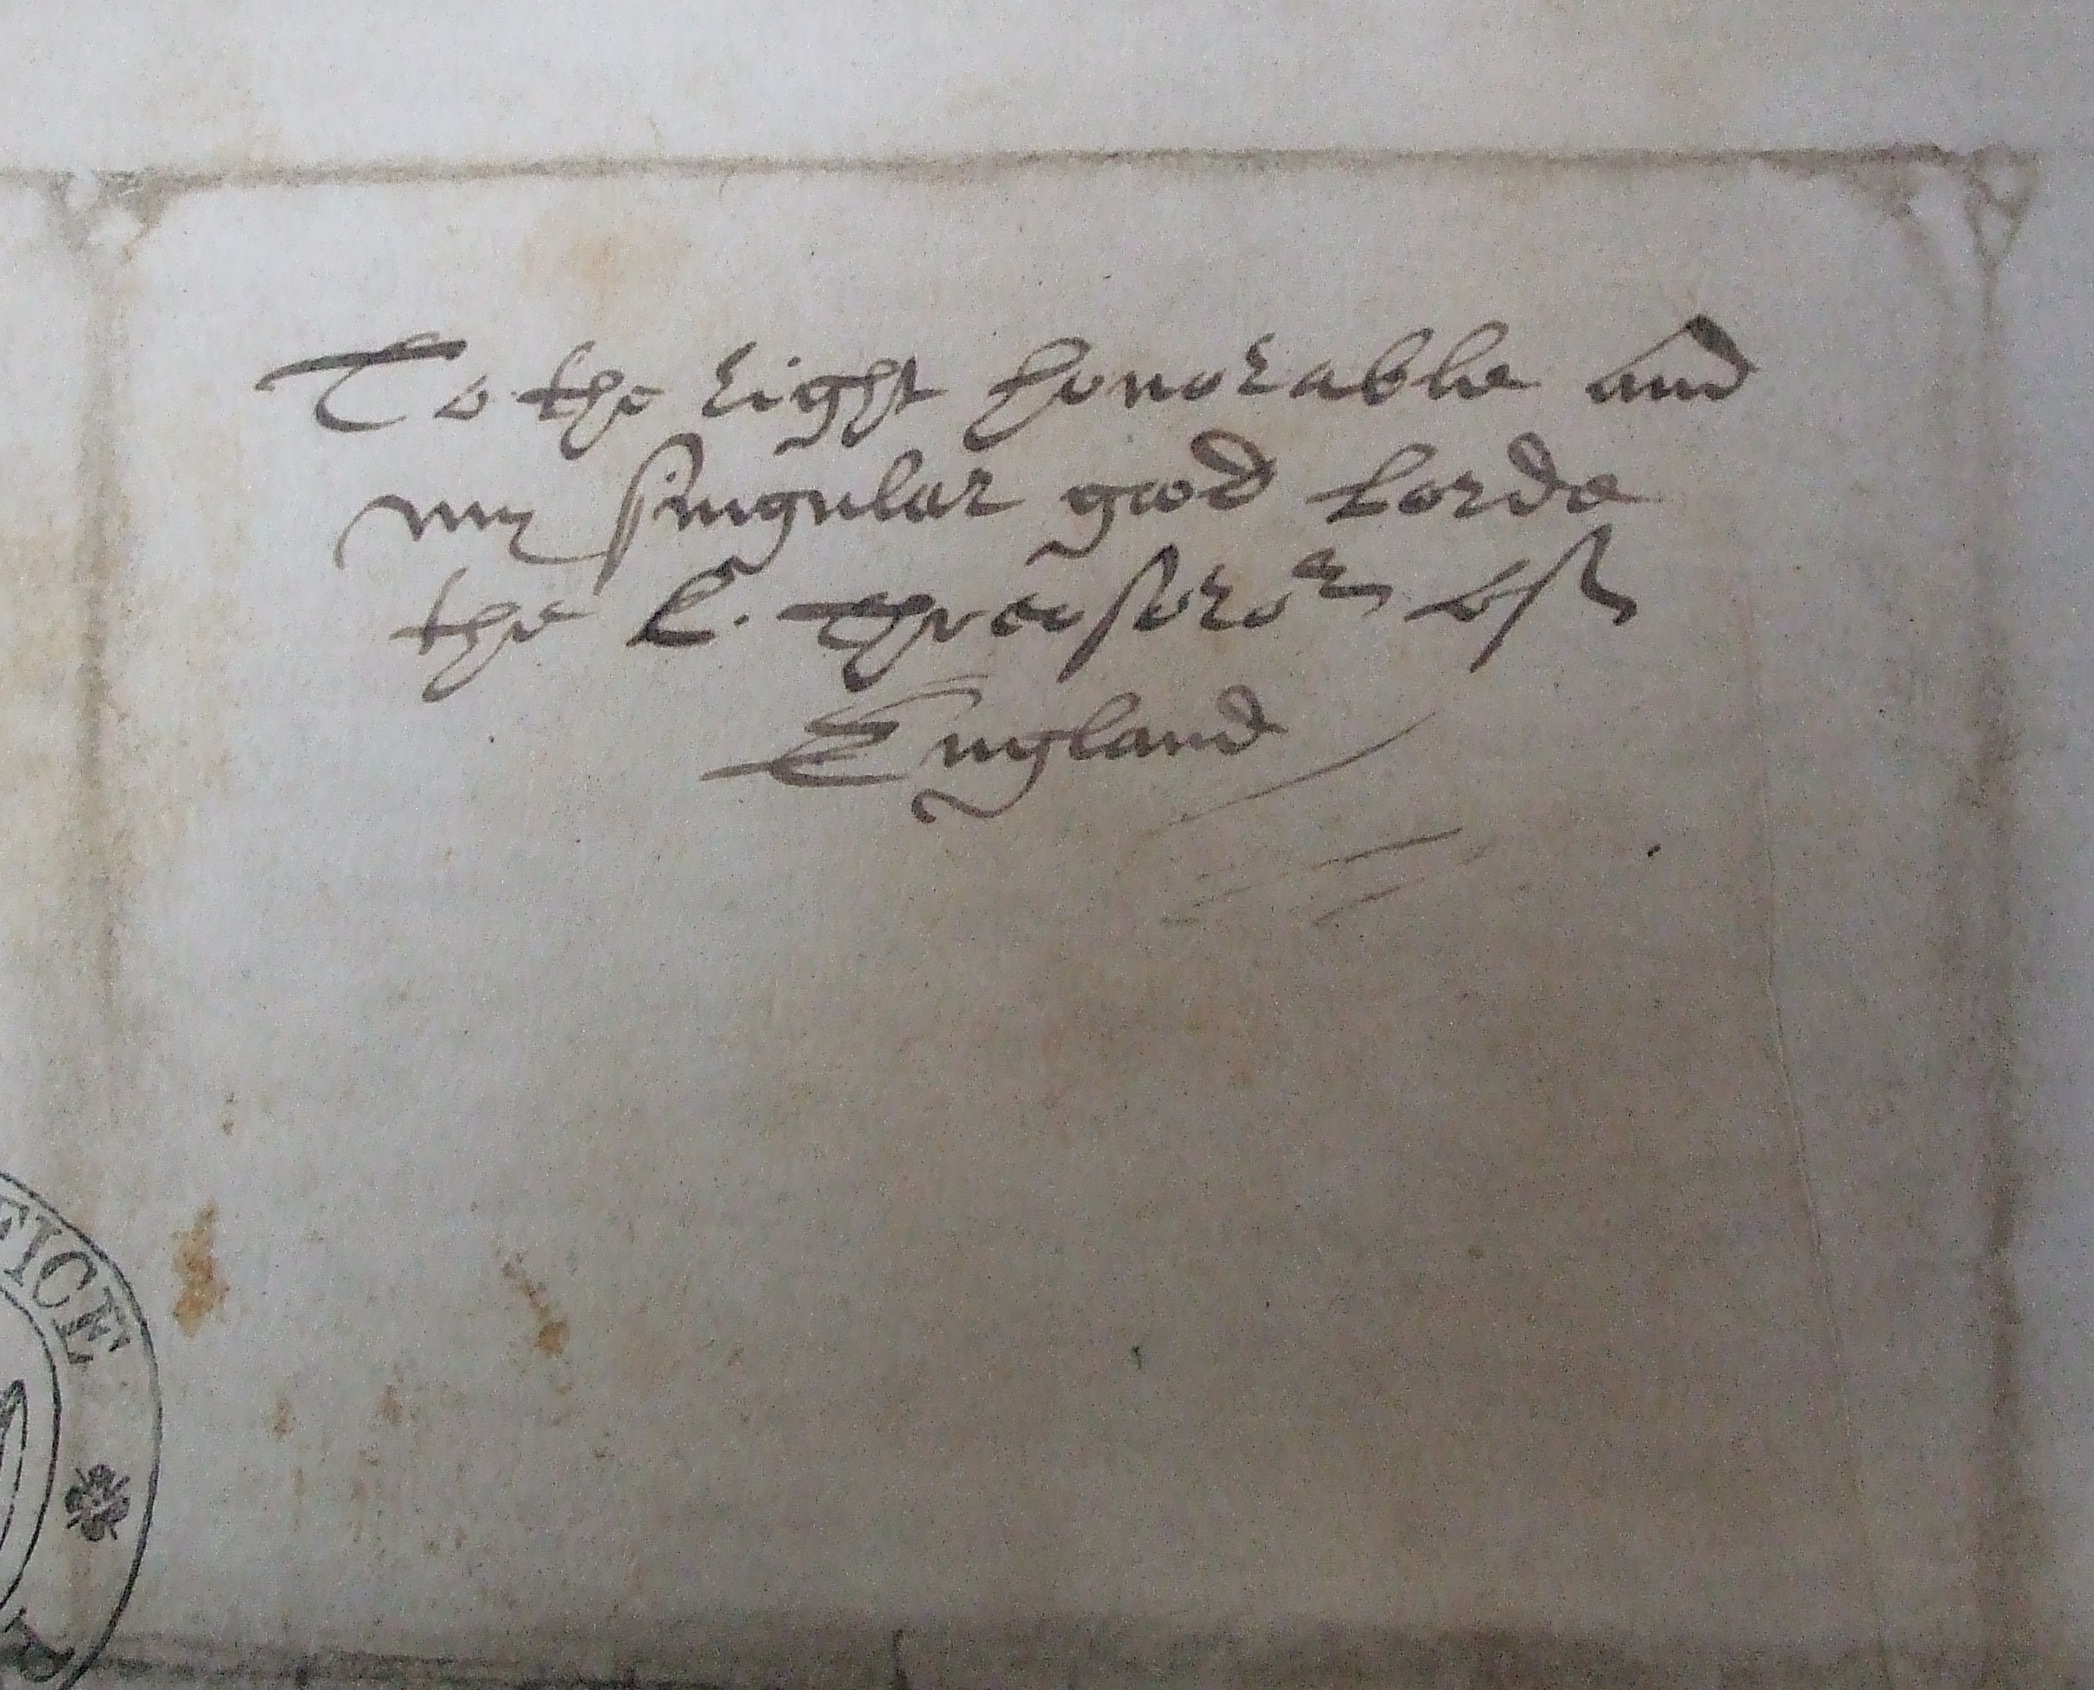 To the right honorable and
my singular good Lorde
the L. Threasoror of
England
FICE